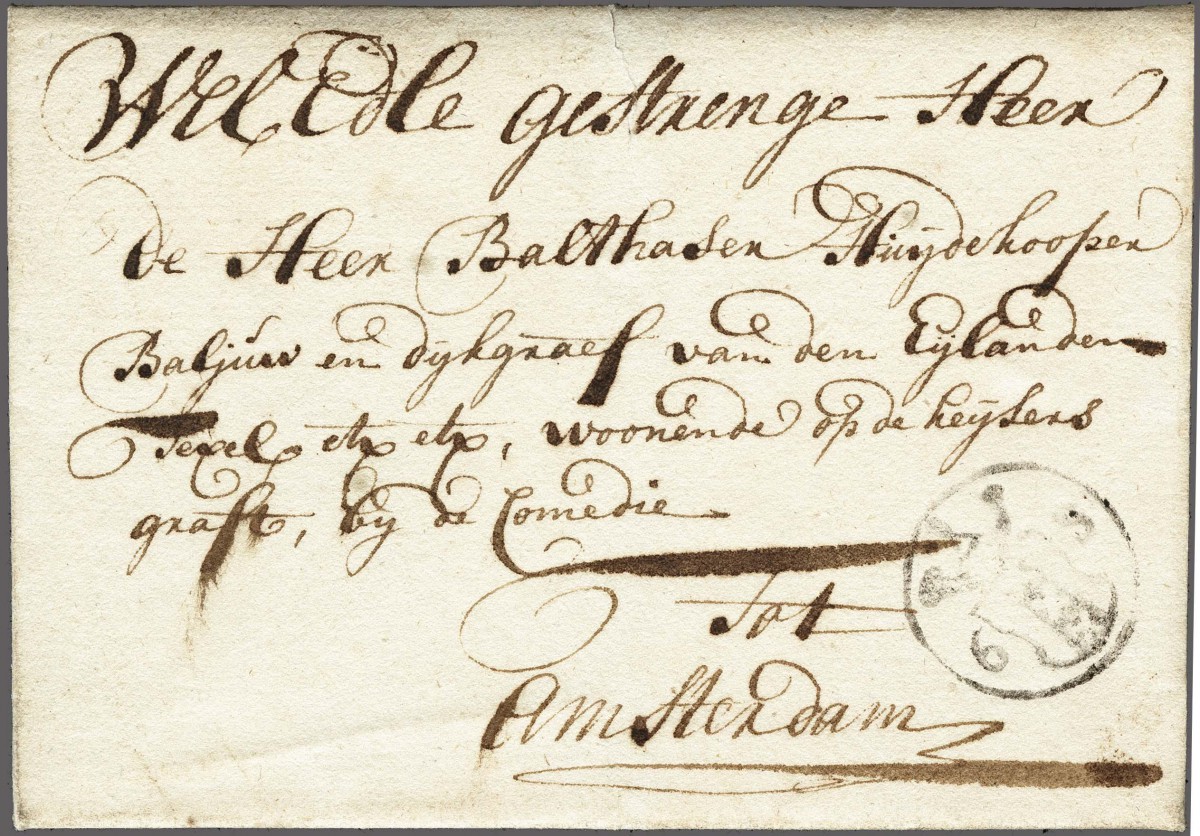 Wel Edle gestrenge Heer
de Heer Balthaser Huijdekooper
Baljuw en dijkgraef van den Eijlanden
Texel etx etx, woonende op de keijsers
graft, bij de Comedie
Tot
Amsterdam
6